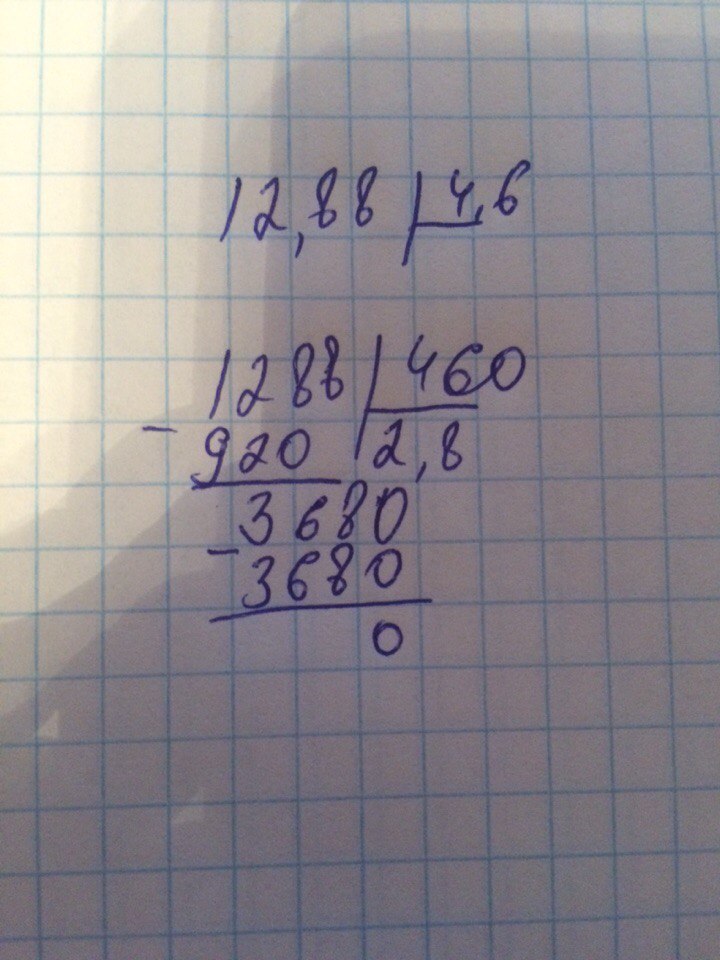 12,88 | 4,6
1288 | 460
- 920 | 2,8
3680
- 3680
0